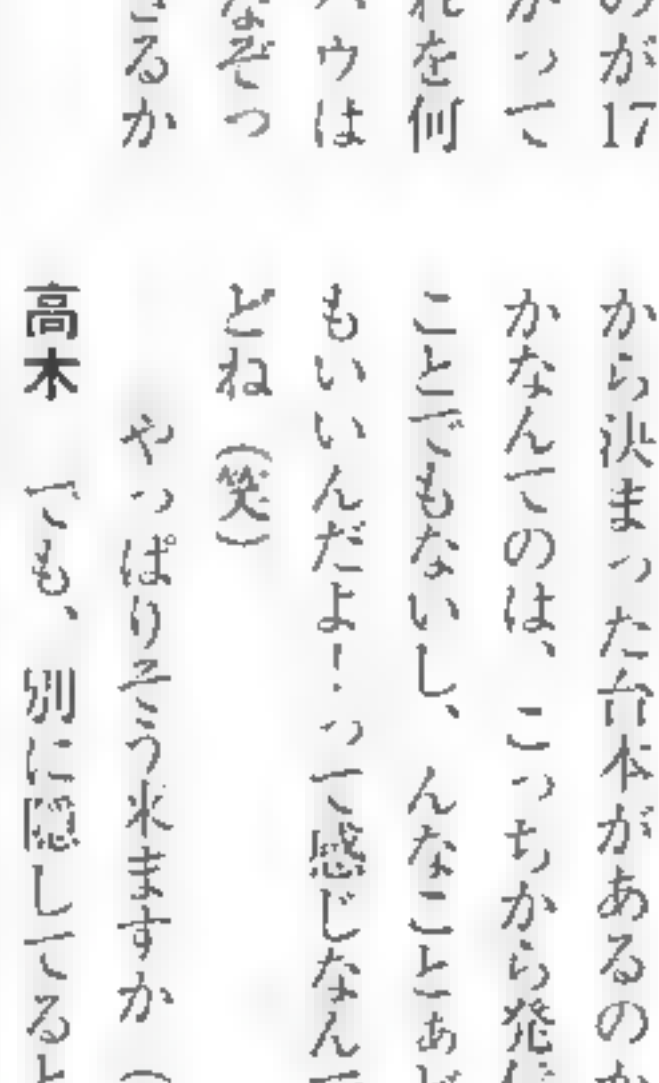 のが17
かって
れを何
ハウは
なぞっ
きるか
から決まった台本があるのか
かなんてのは、こっちから発信
ことでもないし、んなことぁど
もいいんだよ!って感じなんて
どね（笑）
やっぱりそう来ますか（
高木　でも、別に隠してると